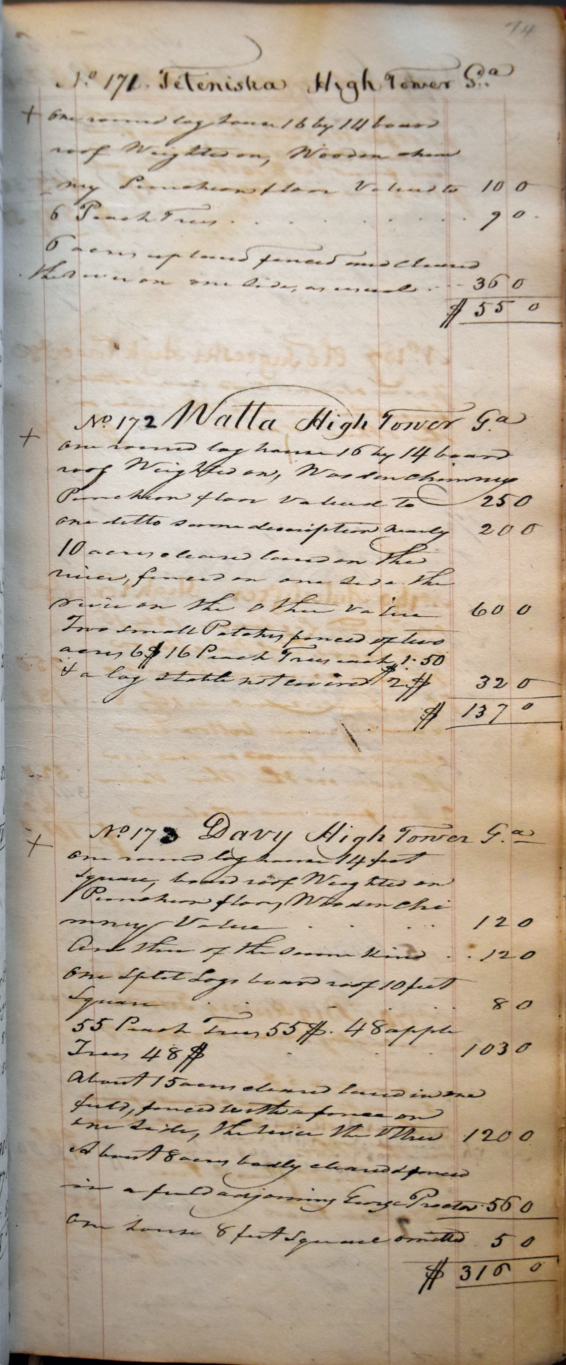 74
No 171. Teteniska High Tower Ga
+ One round log house 16 by 14 board
roof Weighted on, Wooden chim
ny Puncheon floor Valued to 10 0
6 Peach Trees . . . . . . . 9 0
6 acres upland fenced and cleared
the river on one side, as usual . . . 36 0
$ 55 0
+ No 172 Watta High Tower Ga
One round log house 16 by 14 board
roof Weighted on, Wooden chimney
Puncheon floor Valued to 25 0
one ditto same description nearly 20 0
10 acres cleared land on the
river, fenced on one side the
river on the other value 60 0
Two small Patches fenced of two
acres 6$ 16 Peach Trees each $1.50
& a log stable not covered 2.$ 32 0
$ 137 0
+ No 173 Davy High Tower Ga
One round log house 14 feet
square, board roof Weighted on
Puncheon floor, Wooden Chi
mney Value . . . . 12 0
Another of the same kind . . 12 0
One Split Logs board roof 10 feet
Square . . . . . 8 0
55 Peach Trees 55$. 48 apple
Trees 48$ . . . . 103 0
About 15 acres cleared land in one
field, fenced with a fence on
one side, the river the other 120 0
About 8 acres badly cleared & fenced
in a field adjoining George Proctor 56 0
One house 8 feet Square omitted 5 0
$ 316 0